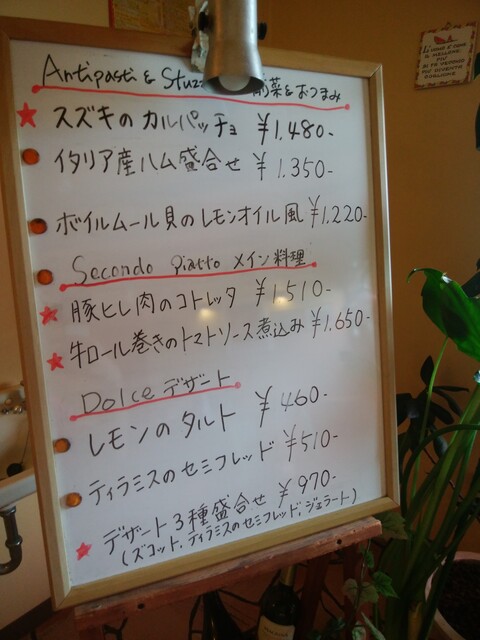 Antipasti & 前菜&おつまみ
スズキのカルパッチョ ¥1,480-
イタリア産ハム盛合せ ¥1.350-
ボイルムール貝のレモンオイル風 ¥1,220-
Secondo piatto メイン料理
豚ヒレ肉のコトレッタ ¥1,510-
牛ロール巻きのトマトソース煮込み ¥1.650-
Dolce デザート
レモンのタルト ¥460-
ティラミスのセミフレッド ¥510-
デザート3種盛合せ ¥970-
(ズコット,ティラミスのセミフレッド,ジェラート)